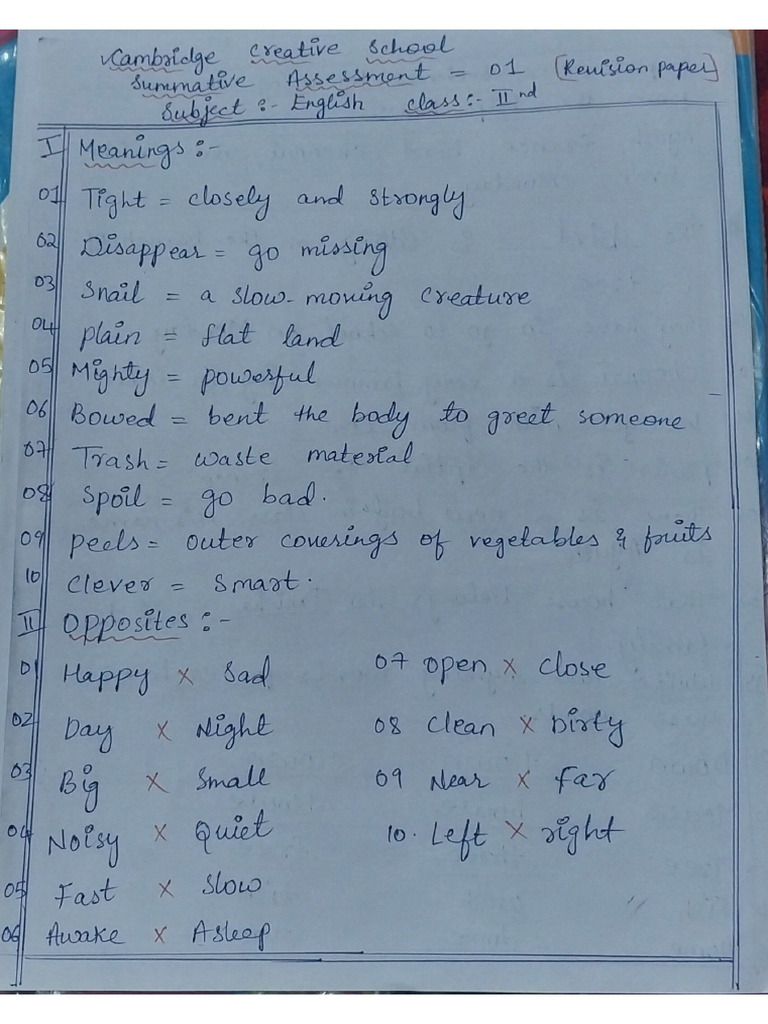 Cambridge Creative School
Summative Assessment = 01 [Revision paper]
Subject :- English class:- IInd
I Meanings :-
01 Tight = closely and strongly
02 Disappear = go missing
03 Snail = a slow-moving creature
04 plain = flat land
05 Mighty = powerful
06 Bowed = bent the body to greet someone
07 Trash = waste material
08 Spoil = go bad.
09 peels = outer coverings of vegetables & fruits
10 Clever = Smart.
II Opposites :-
01 Happy x Sad 07 open x close
02 Day x Night 08 Clean x Dirty
03 Big x Small 09 Near x Far
04 Noisy x Quiet 10. Left x right
05 Fast x Slow
06 Awake x Asleep